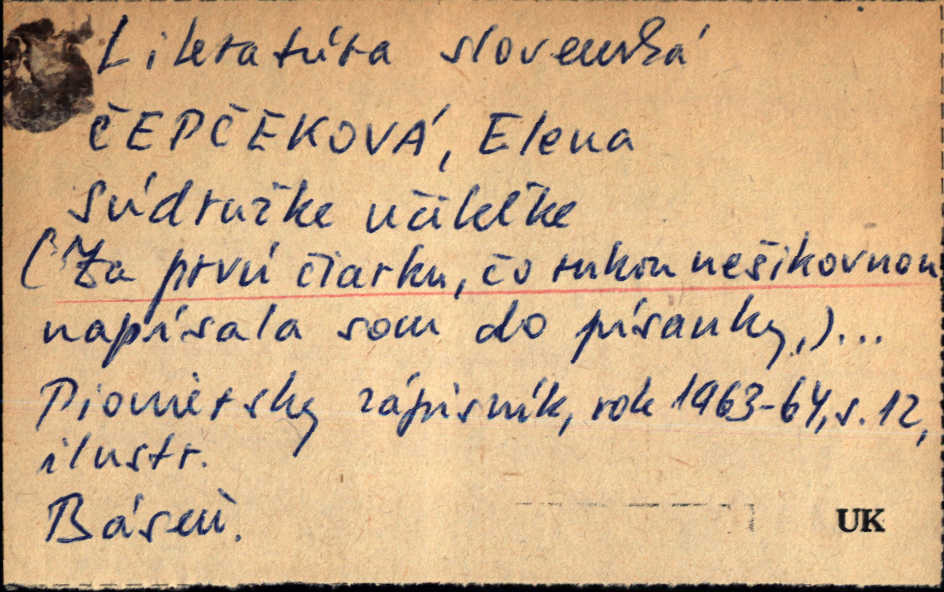 Literatúra slovenská
ČEPČEKOVÁ, Elena
Súdružke učiteľke
(Za prvú čiarku, čo rukou nešikovnou
napísala som do písanky,)...
Pioniersky zápisník, rok 1963-64, s. 12,
ilustr.
Báseň.
UK